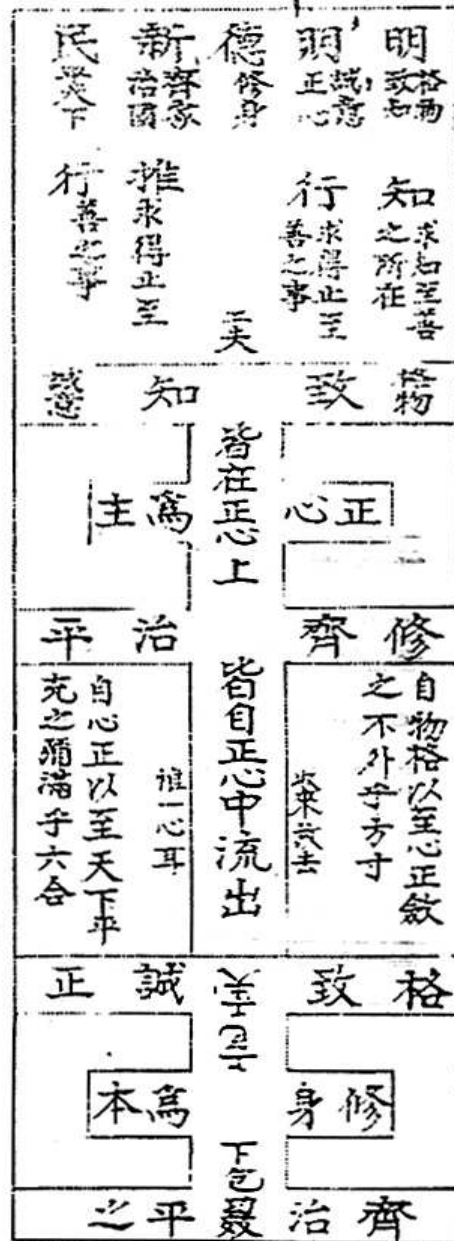 明 格物 致知
明 誠意 正心
德 修身
新 齊家 治國
民 天下
知 求知至善
之所在
行 求得止至
善之事
工夫
推 求得止至
行 善之事
格物 致 知 誠意
皆在正心上
正心 爲主
修齊 治平
自物格以至心正斂
之不外乎方寸
收來放去
皆自正心中流出
惟一心耳
自心正以至天下平
充之彌滿乎六合
格致 誠正
修身 爲本
下包
齊治 平之